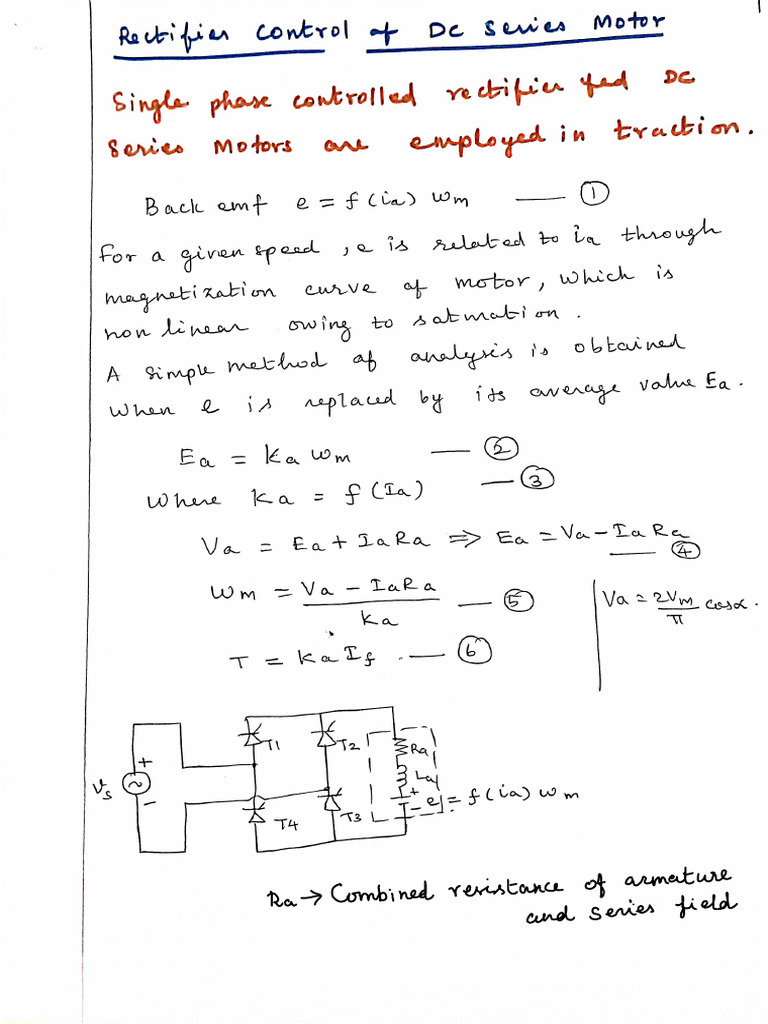 1
Rectifier control of DC Series Motor
Single phase controlled rectifier fed DC
Series Motors are employed in traction.
Back emf e = f(ia) ωm —— ①
For a given speed, e is related to ia through
magnetization curve of motor, which is
non linear owing to saturation.
A simple method of analysis is obtained
When e is replaced by its average value Ea.
Ea = Ka ωm —— ②
Where Ka = f(Ia) —— ③
Va = Ea + IaRa ⇒ Ea = Va - IaRa —— ④
ωm = (Va - IaRa)/Ka —— ⑤
Va = 2Vm/π cosα.
T = KaIf —— ⑥
T1 T2 Ra
La
+
Vs + ~ -
+ - e = f(ia) ωm
T4 T3
Ra → Combined resistance of armature
and series field